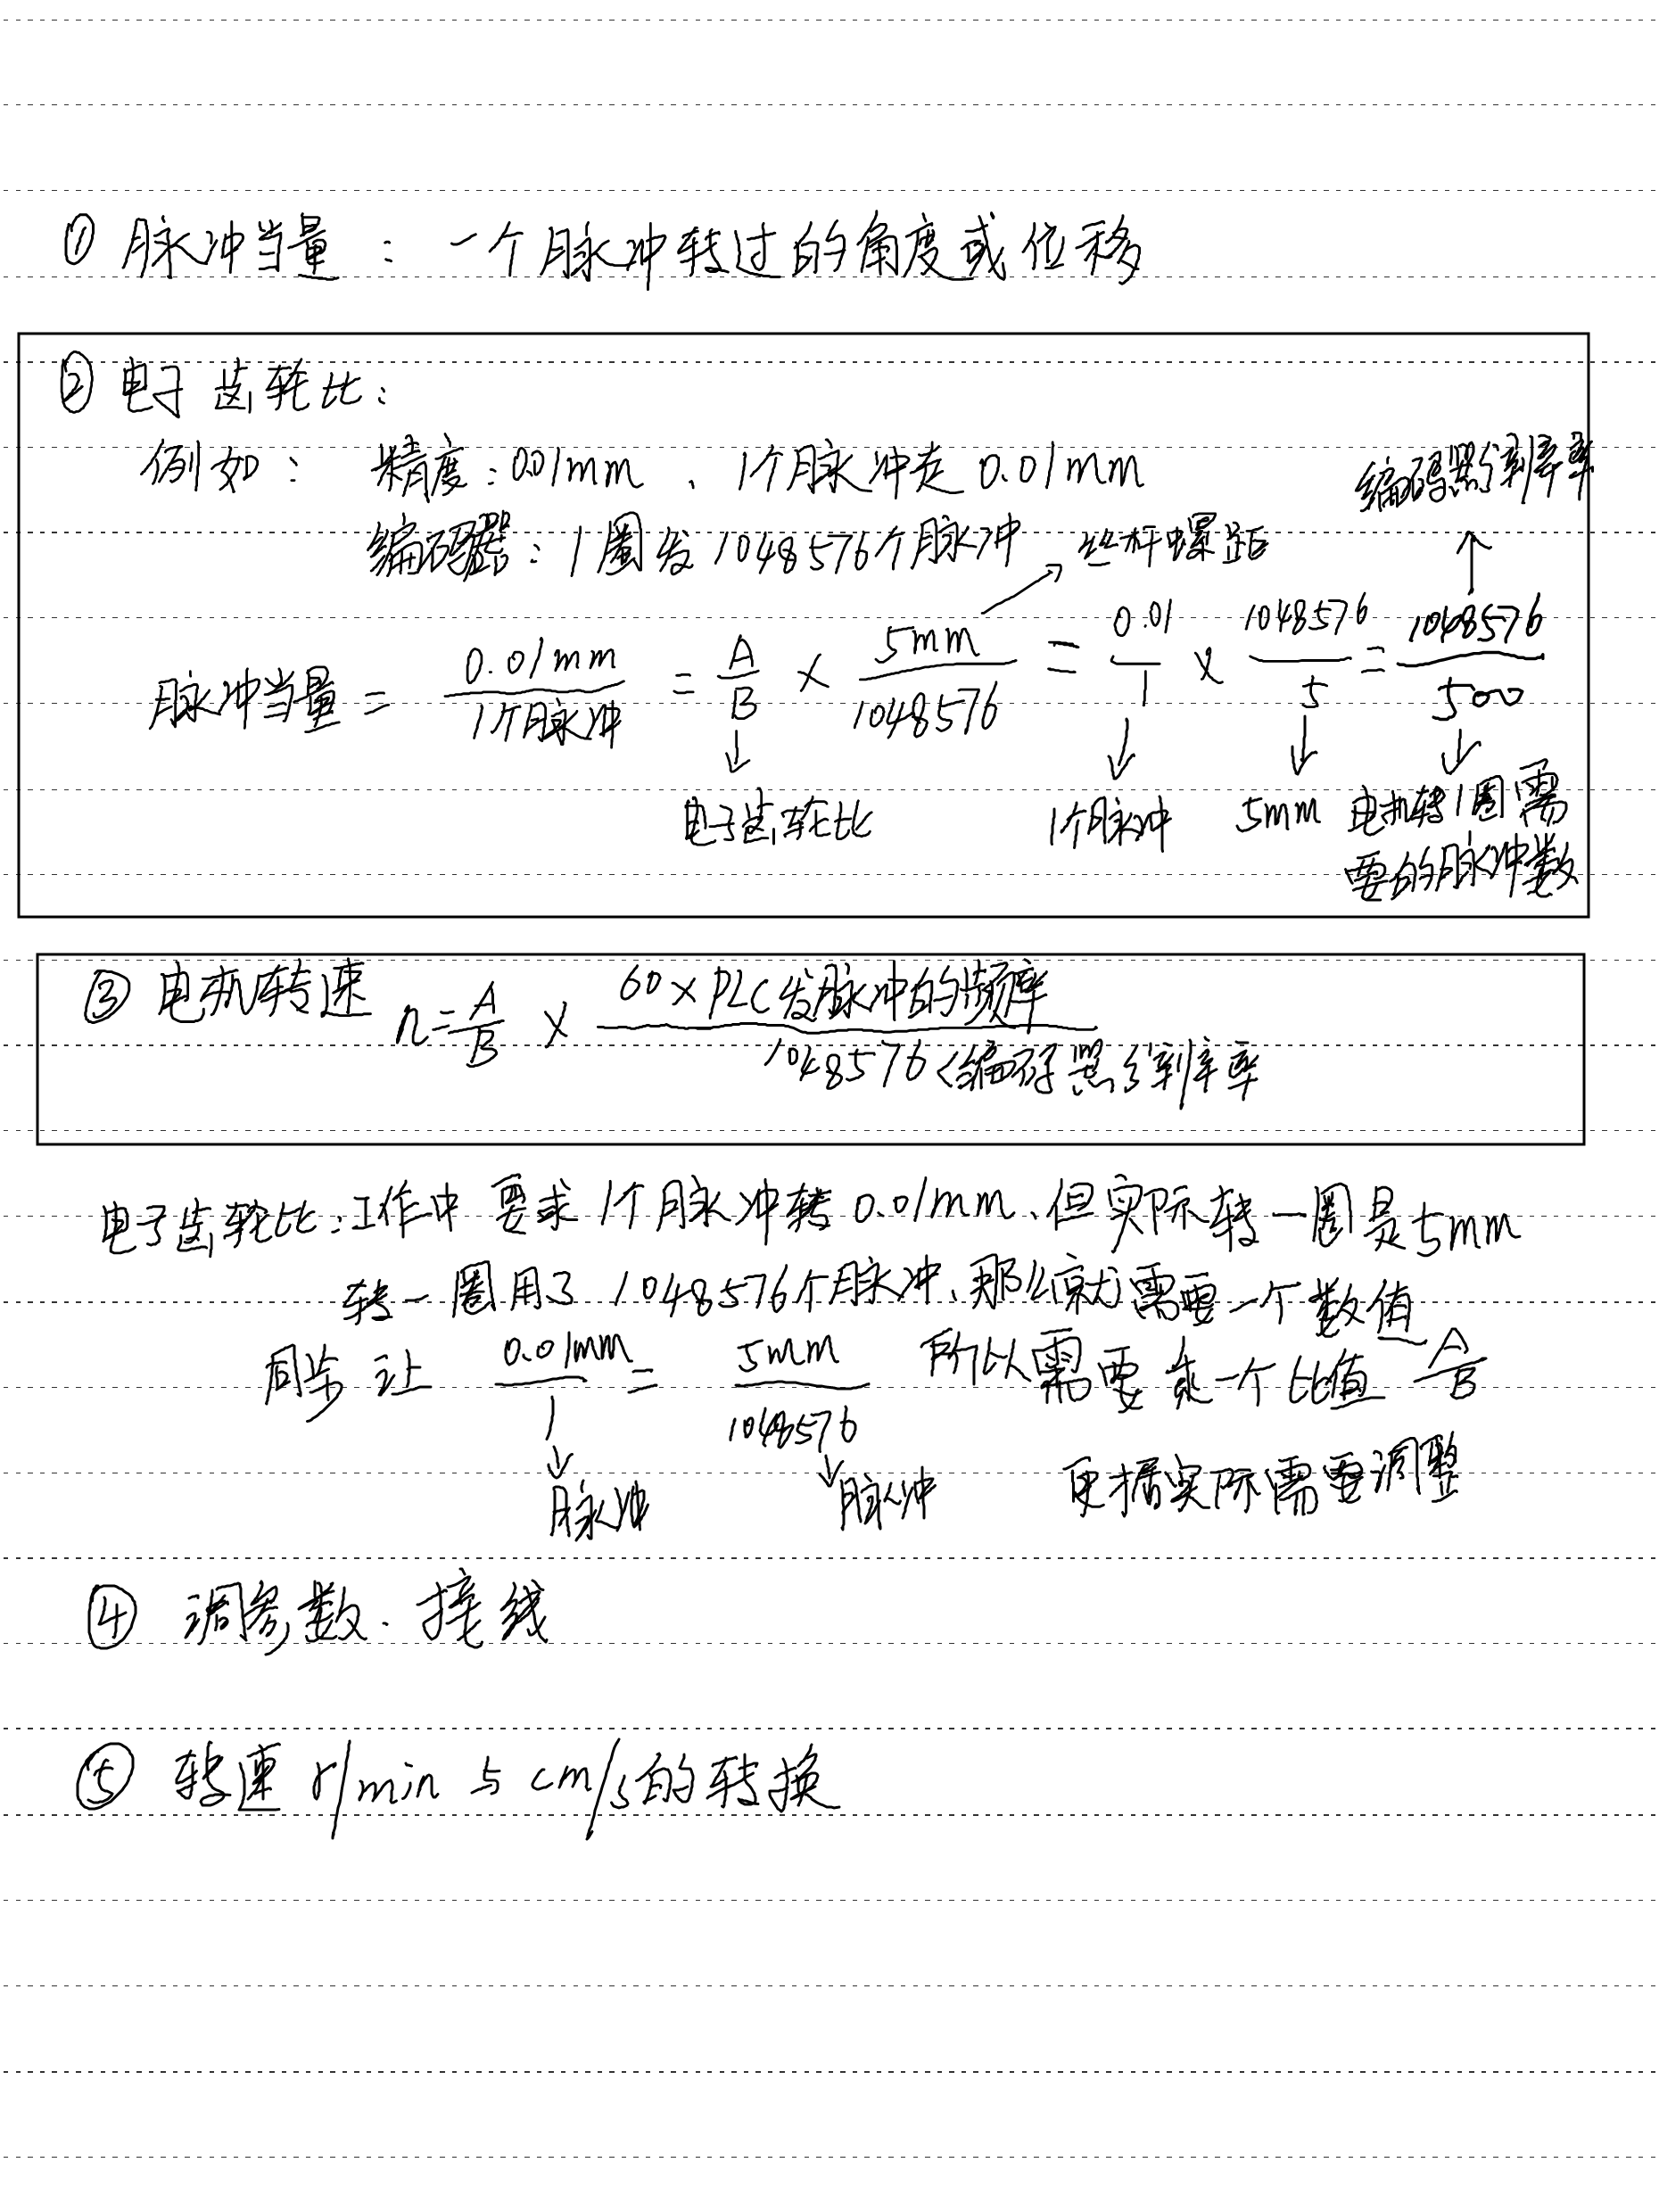 ① 脉冲当量：一个脉冲转过的角度或位移
② 电子齿轮比：
例如：精度：0.01mm、1个脉冲走 0.01mm
编码器分辨率
编码器：1圈发1048576个脉冲
丝杆螺距
脉冲当量 = 0.01mm/1个脉冲 = A/B × 5mm/1048576 = 0.01/1 × 1048576/5 = 1048576/500
电子齿轮比
1个脉冲
5mm
电机转1圈需
要的脉冲数
③ 电机转速 n = A/B × 60×PLC发脉冲的频率/1048576<编码器分辨率
电子齿轮比：工作中 要求 1个脉冲转 0.01mm、但实际转一圈是5mm
转一圈用了 1048576个脉冲、那么就需要一个数值
同步 让 0.01mm/1 = 5mm/1048576 所以需要乘一个比值 A/B
脉冲
脉冲
据实际需要调整
④ 调参数、接线
⑤ 转速 r/min 与 cm/s的转换